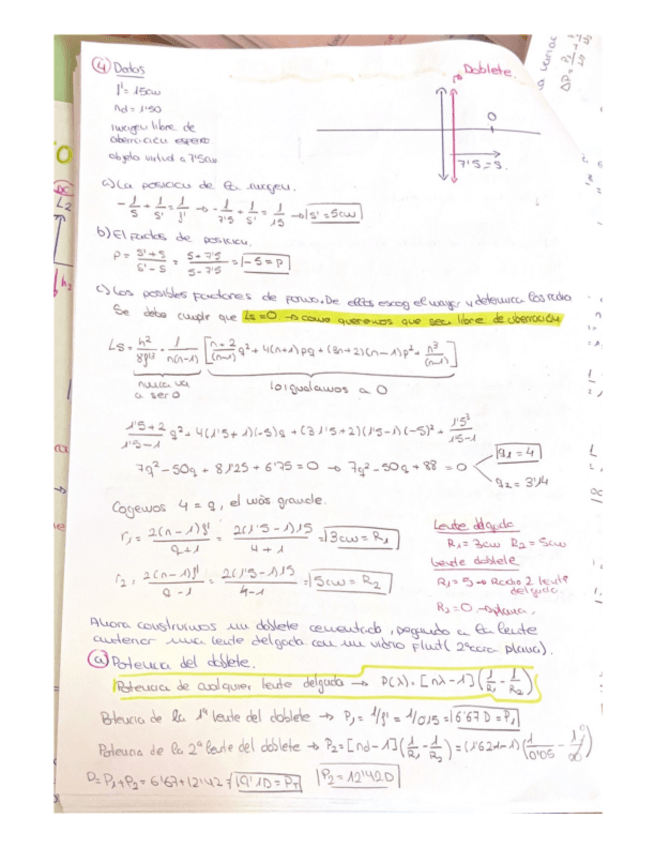 ④ Datos
f' = 15cm
nd = 1'50
imagen libre de
aberración esférica
objeto virtual a 7'5cm
Doblete.
O
7'5 = S.
ΔP =
a) La posición de la imagen.
-1/S + 1/S' = 1/f' → -1/7'5 + 1/S' = 1/15 → S' = 5cm
b) El factor de posición.
P = S'+S / S'-S = 5+7'5 / 5-7'5 = -5 = P
c) Los posibles factores de forma. De ellos escog el mayor y determina los radio
Se debe cumplir que Ls=0 → como queremos que sea libre de aberración
LS = h²/8f'³ · 1/n(n-1) [n+2/(n-1) q² + 4(n+1)pq + (3n+2)(n-1)p² + n³/(n-1)]
nunca va
a ser 0
lo igualamos a 0
1'5+2/1'5-1 q² + 4(1'5+1)(-5)q + (3·1'5+2)(1'5-1)(-5)² + 1'5³/1'5-1
7q² - 50q + 81'25 + 6'75 = 0 → 7q² - 50q + 88 = 0
q1 = 4
q2 = 3'14
Cogemos 4 = q, el más grande.
r1 = 2(n-1)f'/q+1 = 2(1'5-1)15/4+1 = 3cm = R1
r2 = 2(n-1)f'/q-1 = 2(1'5-1)15/4-1 = 5cm = R2
Lente delgada
R1 = 3cm R2 = 5cm
Lente doblete
R1 = 5 → Radio 2 lente
delgada
R2 = 0 → plana.
Ahora construimos un doblete cementado, pegando a la lente
anterior una lente delgada con un vidrio Flint (2ª cara plana).
ⓐ Potencia del doblete.
Potencia de cualquier lente delgada → P(λ) = [nλ-1] (1/R1 - 1/R2)
Potencia de la 1ª lente del doblete → P1 = 1/f' = 1/0'15 = 6'67 D = P1
Potencia de la 2ª lente del doblete → P2 = [nd-1] (1/R1 - 1/R2) = (1'621-1) (1/0'05 - 1/∞) 0
P = P1 + P2 = 6'67 + 12'42 = 19'1D = PT P2 = 12'42D